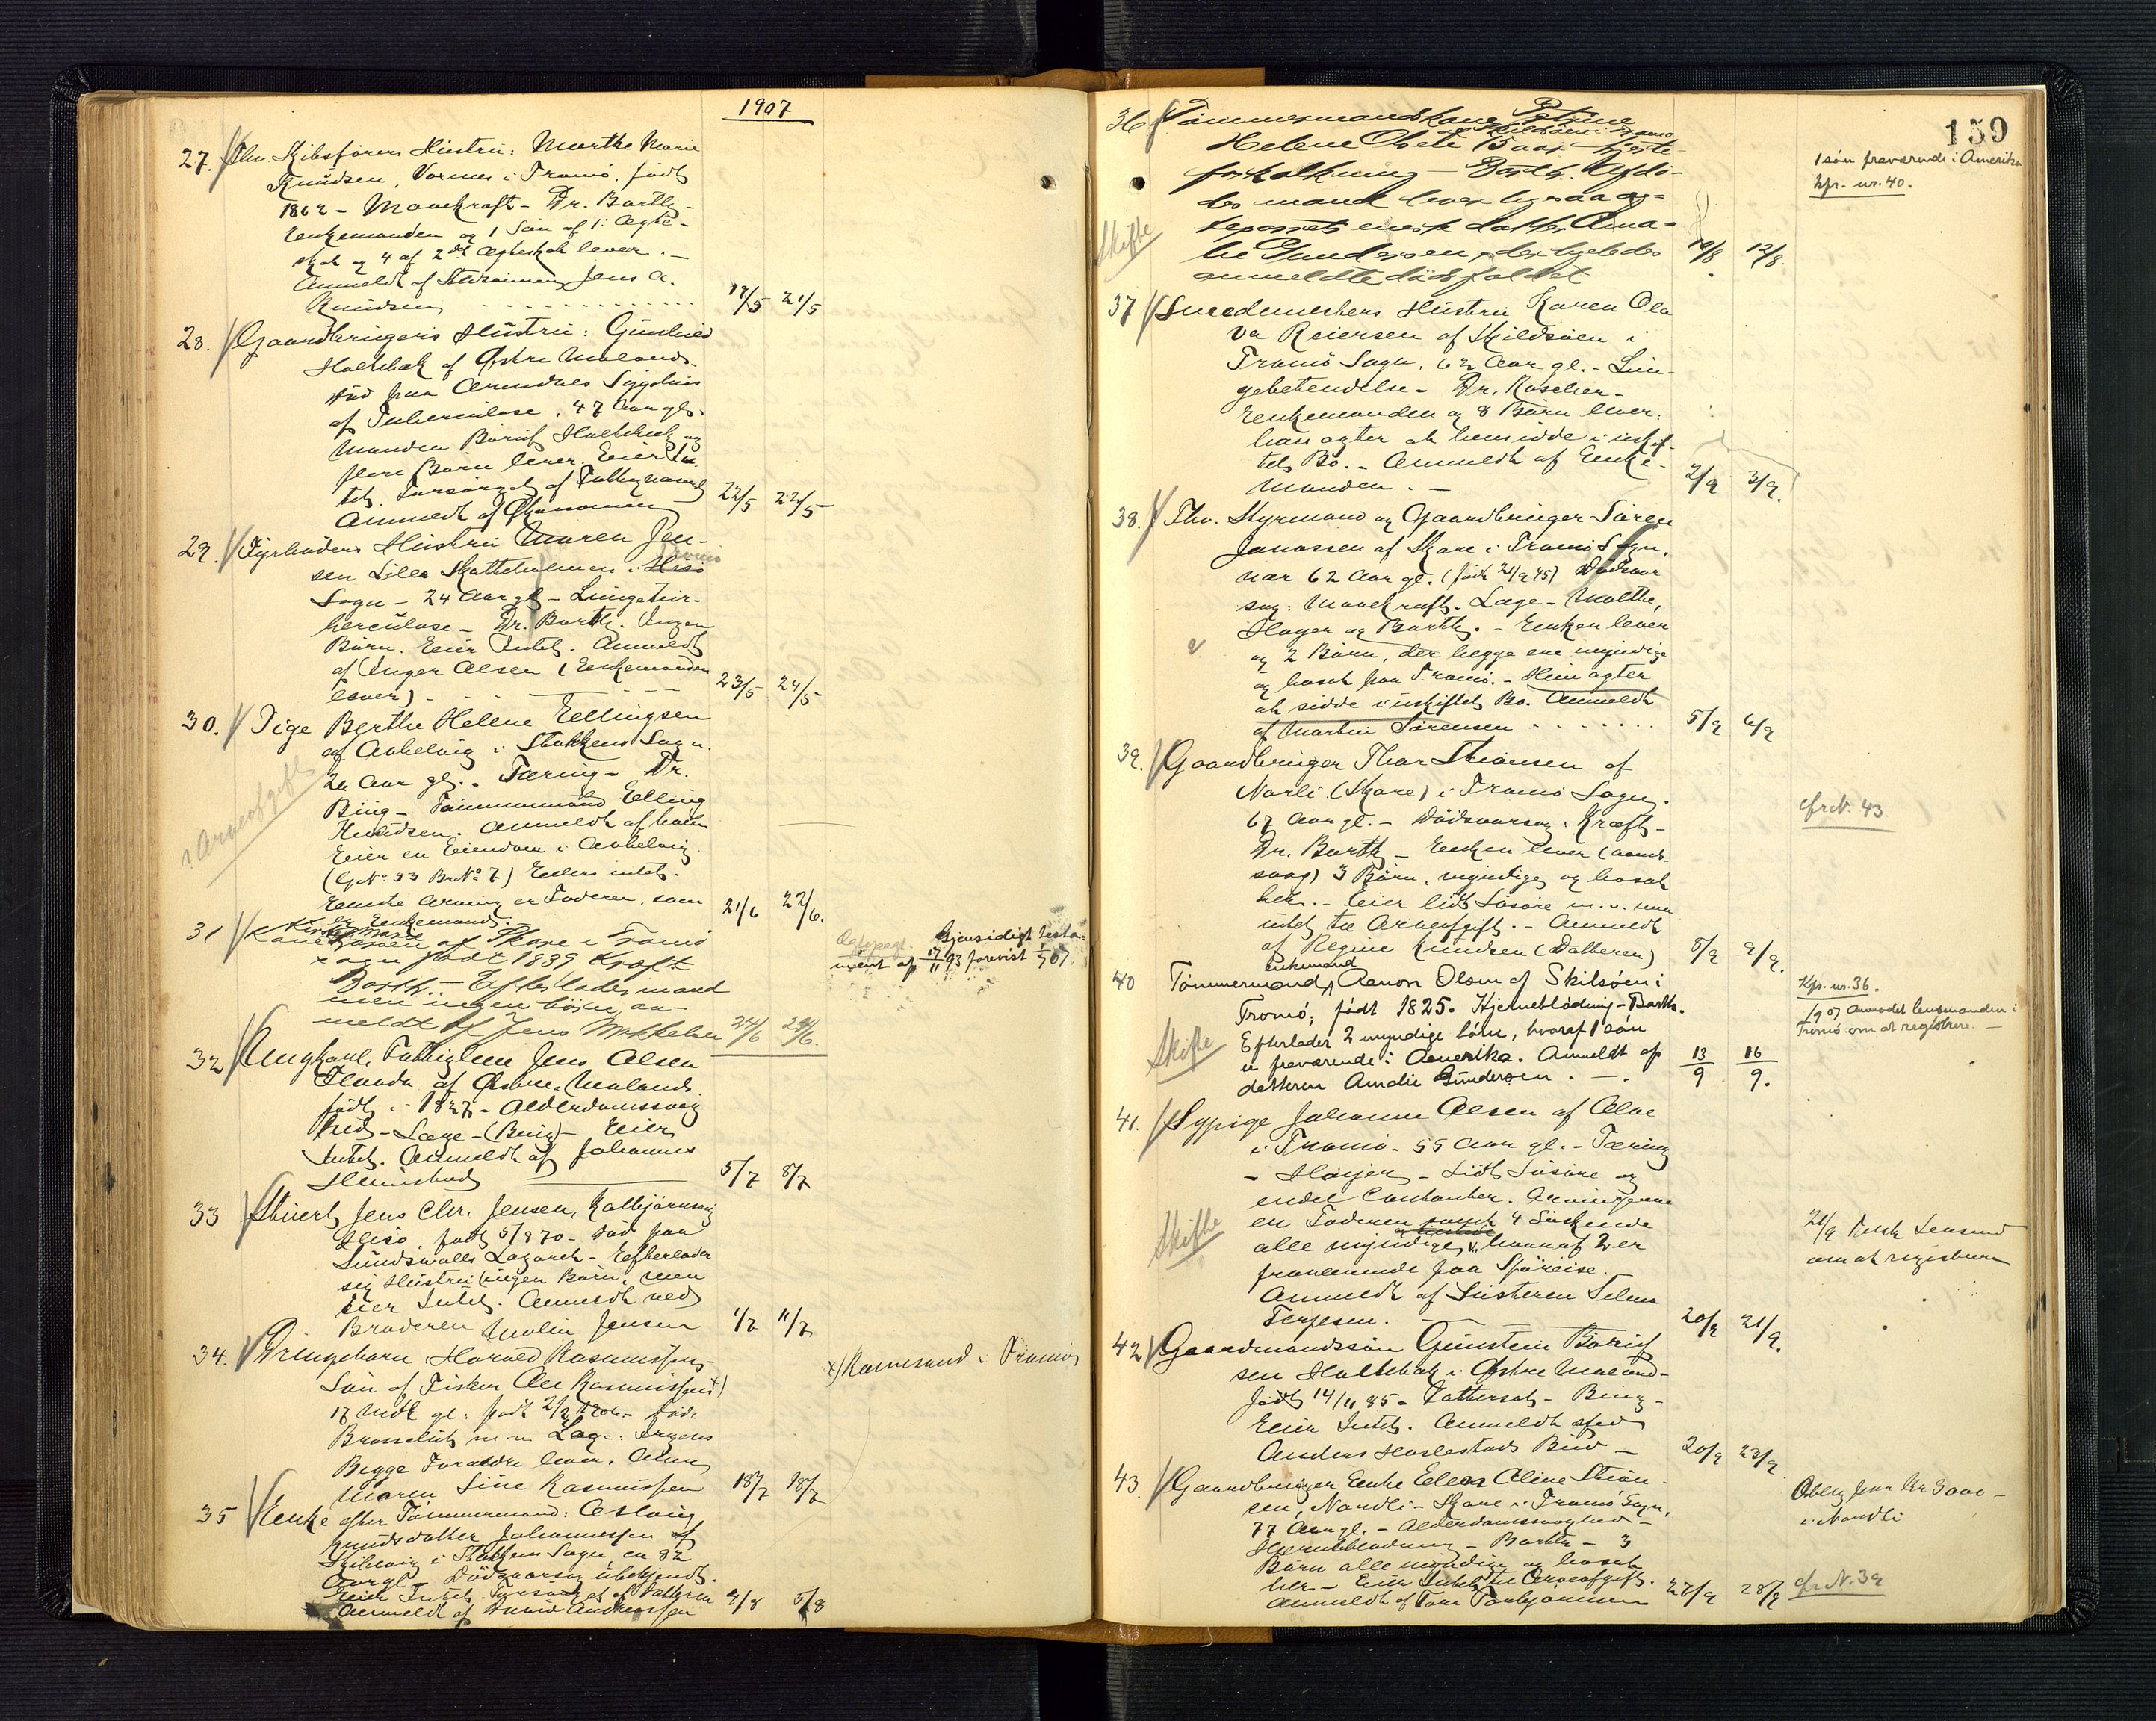 1907
27. Fhv. Skibsførers Hustru: Marthe Marie
Knudsen, Vormes i Tromö, født
1862 - Mavekræft - Dr. Barth -
Enkemanden og 1 Søn af 1. Ægte-
skab og 4 af 2det Ægteskab lever. -
Anmeldt af Jens A.
Knudsen
17/5 21/5
28. Gaardbrugers Hustru: Gunhild
Holtebak af Østre Molands
död paa Arendals Sygehus
af Tuberculose, 47 Aar gl.
Manden Böruf Holtebak og
flere Børn lever. Eier In-
tet. Forsörget af Fattigvæsenet
Anmeldt af Økonomen
22/5 22/5
29. Fyrböders Hustru Maren Jen-
sen Lille Skotteholmen i Hisö
Tromö
Sogn - 24 Aar gl - Lungetu-
berculose - Dr. Barth. Ingen
Børn. Eier Intet. Anmeldt
af Inger Olsen (Enkemanden
lever) -
23/5 24/5
30. Pige Berthe Helene Ellingsen
af Askelvig i Stokkens Sogn.
Aar gl. - Tæring - Dr.
Bing - Tömmermand Elling
Knudsen. Anmeldt af ham
Eier en Eiendom i
(G.No 33 Br.No 7) Ellers intet.
Eneste Arving er Faderen, som
er Enkemand.
21/6 22/6.
Arveafgift
31 Kone
af Skare i Tromö
sogn født 1839 Kræft
Barth - Efterlader mand
men ingen börn, an-
meldt af Jens Mikkelsen
24/6 24/6.
Ægtepagt. Gjensidigt testa-
ment af 17/11 93 forevist 1/7 07.
32. Ungkarl, Fattiglem Jens Olsen
Flauda af Østre Molands
født i 1827 - Alderdomssvag
hed - Læge - (Bing) - Eier
Intet. Anmeldt af Johannes
5/7 8/7
33 Stuert Jens Chr. Jensen, Kolbjörnsvig
Hisö, født 5/8 70 - död paa
Sundsvalls Lazaret - Efterlader
sig Hustru (ingen Börn), men
Eier Intet. Anmeldt ved
Broderen Malin Jensen
1/7 11/7
34. Drengebarn Harald Rasmussen
Søn af Fisker Ole Rasmussen x)
17 Mdr gl. født 2/2 1906 -
Bronchit m m Læge:
Begge Forældre lever. Anm
Maren Line Rasmussen
18/7 18/7
x) Ravnesund i Tromö
35 Enke efter Tömmermand: Aslaug
Knudsdatter Johannessen af
i Stokken Sogn, ca 82
Aar gl - Dödsaarsag ubekjendt.
Eier Intet. Forsörget af Datteren
Anmeldt af David Andreassen
4/8 5/8
159
36 Tömmermandskone Petrine
Helene Olsen
Hjerte-
forkalkning - Barth. Afdö-
des mand lever ligesaa og-
separets eneste datter Ama-
lie Gundersen, der ligeledes
anmeldte dödsfaldet
10/8 12/8
Skifte
1 sön fraværende i Amerika
kfr. nr. 40.
37 Smedemesters Hustru Karen Ola
va Reiersen af Skildsöen i
Tromö Sogn, 62 Aar gl. - Lun-
gebetendelse - Dr. Roscher -
Enkemanden og 8 Börn lever:
han agter at hensidde i uskif-
tet Bo. - Anmeldt af Enke-
manden. -
2/9 3/9.
38. Fhv. Styrmand og Gaardbruger Sören
Jonassen af Skare i Tromö Sogn,
var 62 Aar gl. (født 21/2 45) Dødsaar
sag: Mavekræft. Læge - Molthe,
Hagen og Barth. - Enken lever
og 2 Börn, der begge ere myndige
og bosat paa Tromö. - Hun agter
at sidde i uskiftet Bo. Anmeldt
af Martin Sörensen
5/9 6/9
39. Gaardbruger Thor Stiansen af
Narli (Skare) i Tromö Sogn.
67 Aar gl. - Dödsaarsag: Kræft -
Dr. Barth - Enken lever
3 Börn, myndige og bosat
her. - Eier lidt Lösöre m. v. men
intet til Arveafgift. - Anmeldt
af Regine Knudsen (Datteren)
8/9 9/9.
cfr N. 43
40 Tömmermand, enkemand Aanon Olsen af Skilsöen i
Tromö; født 1825. Hjerneblödning - Barth.
Efterlader 2 myndige börn, hvoraf 1 sön
er fraværende i Amerika. Anmeldt af
datteren Amalie Gundersen. -.
13/9 16/9.
Skifte
Kfr. nr. 36.
07 Anmodet lensmanden i
Tromö om at registrere. -
41. Sypige Johanne Olsen af Alve
i Tromö - 55 Aar gl. - Tæring
- Höyer - Lidt Lösöre og
endel Contanter. Arvingerne
er Faderen samt 4 Söskende
alle myndige, hvoraf 2 er
fraværende paa Sjöreise. -
Anmeldt af Søsteren Selma
Terjesen.
20/9 21/9.
Skifte
21/9 Lensmd
om at registrere
42 Gaardmandssön Gunstein Börufs
sen Holtebak i Østre Moland -
født 14/11 85 - Vattersot - Bing -
Eier Intet. Anmeldt ved
Anders Harlestads Bud -
20/9 23/9
43. Gaardbruger Enke Ellen Oline Stian-
sen, Nardli - Skare i Tromö Sogn,
77 Aar gl. - Alderdomssvaghed -
Hjerneblödning - Barth - 3
Börn alle myndige og bosat
her - Eier Intet til Arveafgift.
Anmeldt af Tore Torbjörnsen
27/9 28/9
i Nardli
cfr N. 39